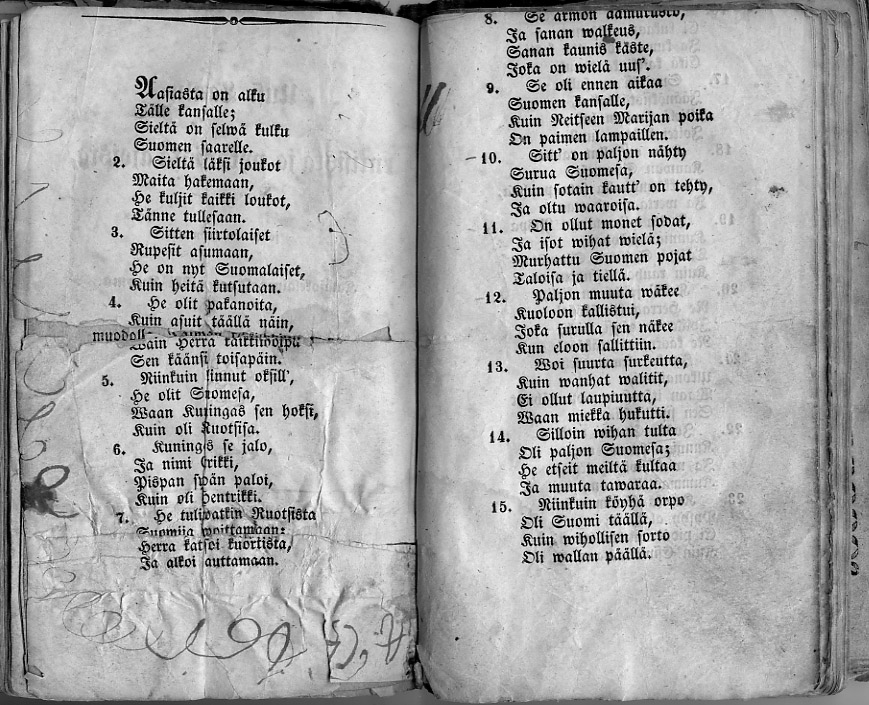 Aasiasta on alku
Tälle kansalle;
Sieltä on selwä kulku
Suomen saarelle.
2. Sieltä läksi joukot
Maita hakemaan,
He kuljit kaikki loukot,
Tänne tullesaan.
3. Sitten siirtolaiset
Rupesit asumaan,
He on nyt Suomalaiset,
Kuin heitä kutsutaan.
4. He olit pakanoita,
Kuin asuit täällä näin,
muodoll
Wain Herra
Sen käänsi toisapäin.
5. Niinkuin linnut oksill',
He olit Suomesa,
Waan Kuningas sen hoksi,
Kuin oli Ruotsisa.
6. Kuningas se jalo,
Ja nimi Erikki,
Pispan sydän paloi,
Kuin oli Hentrikki.
7. He tulipatkin Ruotsista
Suomija woittamaan:
Herra katsoi kuoritsta,
Ja alkoi auttamaan.
8. Se armon aamurusko,
Ja sanan walkeus,
Sanan kaunis käste,
Joka on wielä uus'.
9. Se oli ennen aikaa
Suomen kansalle,
Kuin Neitseen Marijan poika
On paimen lampaillen.
10. Sitt' on paljon nähty
Surua Suomesa,
Kuin sotain kautt' on tehty,
Ja oltu waaroisa.
11. On ollut monet sodat,
Ja isot wihat wielä;
Murhattu Suomen pojat
Taloisa ja tiellä.
12. Paljon muuta wäkee
Kuoloon kallistui,
Joka surulla sen näkee
Kun eloon sallittiin.
13. Woi suurta surkeutta,
Kuin wanhat walitit,
Ei ollut laupiuutta,
Waan miekka hukutti.
14. Silloin wihan tulta
Oli paljon Suomesa;
He etseit meiltä kultaa
Ja muuta tawaraa.
15. Niinkuin köyhä orpo
Oli Suomi täällä,
Kuin wihollisen sorto
Oli wallan päällä.